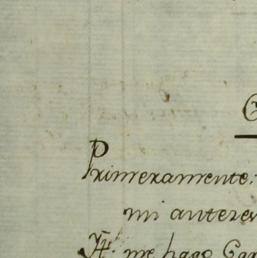 C
Primeramente.
mi anterev
Yt. me hago Car